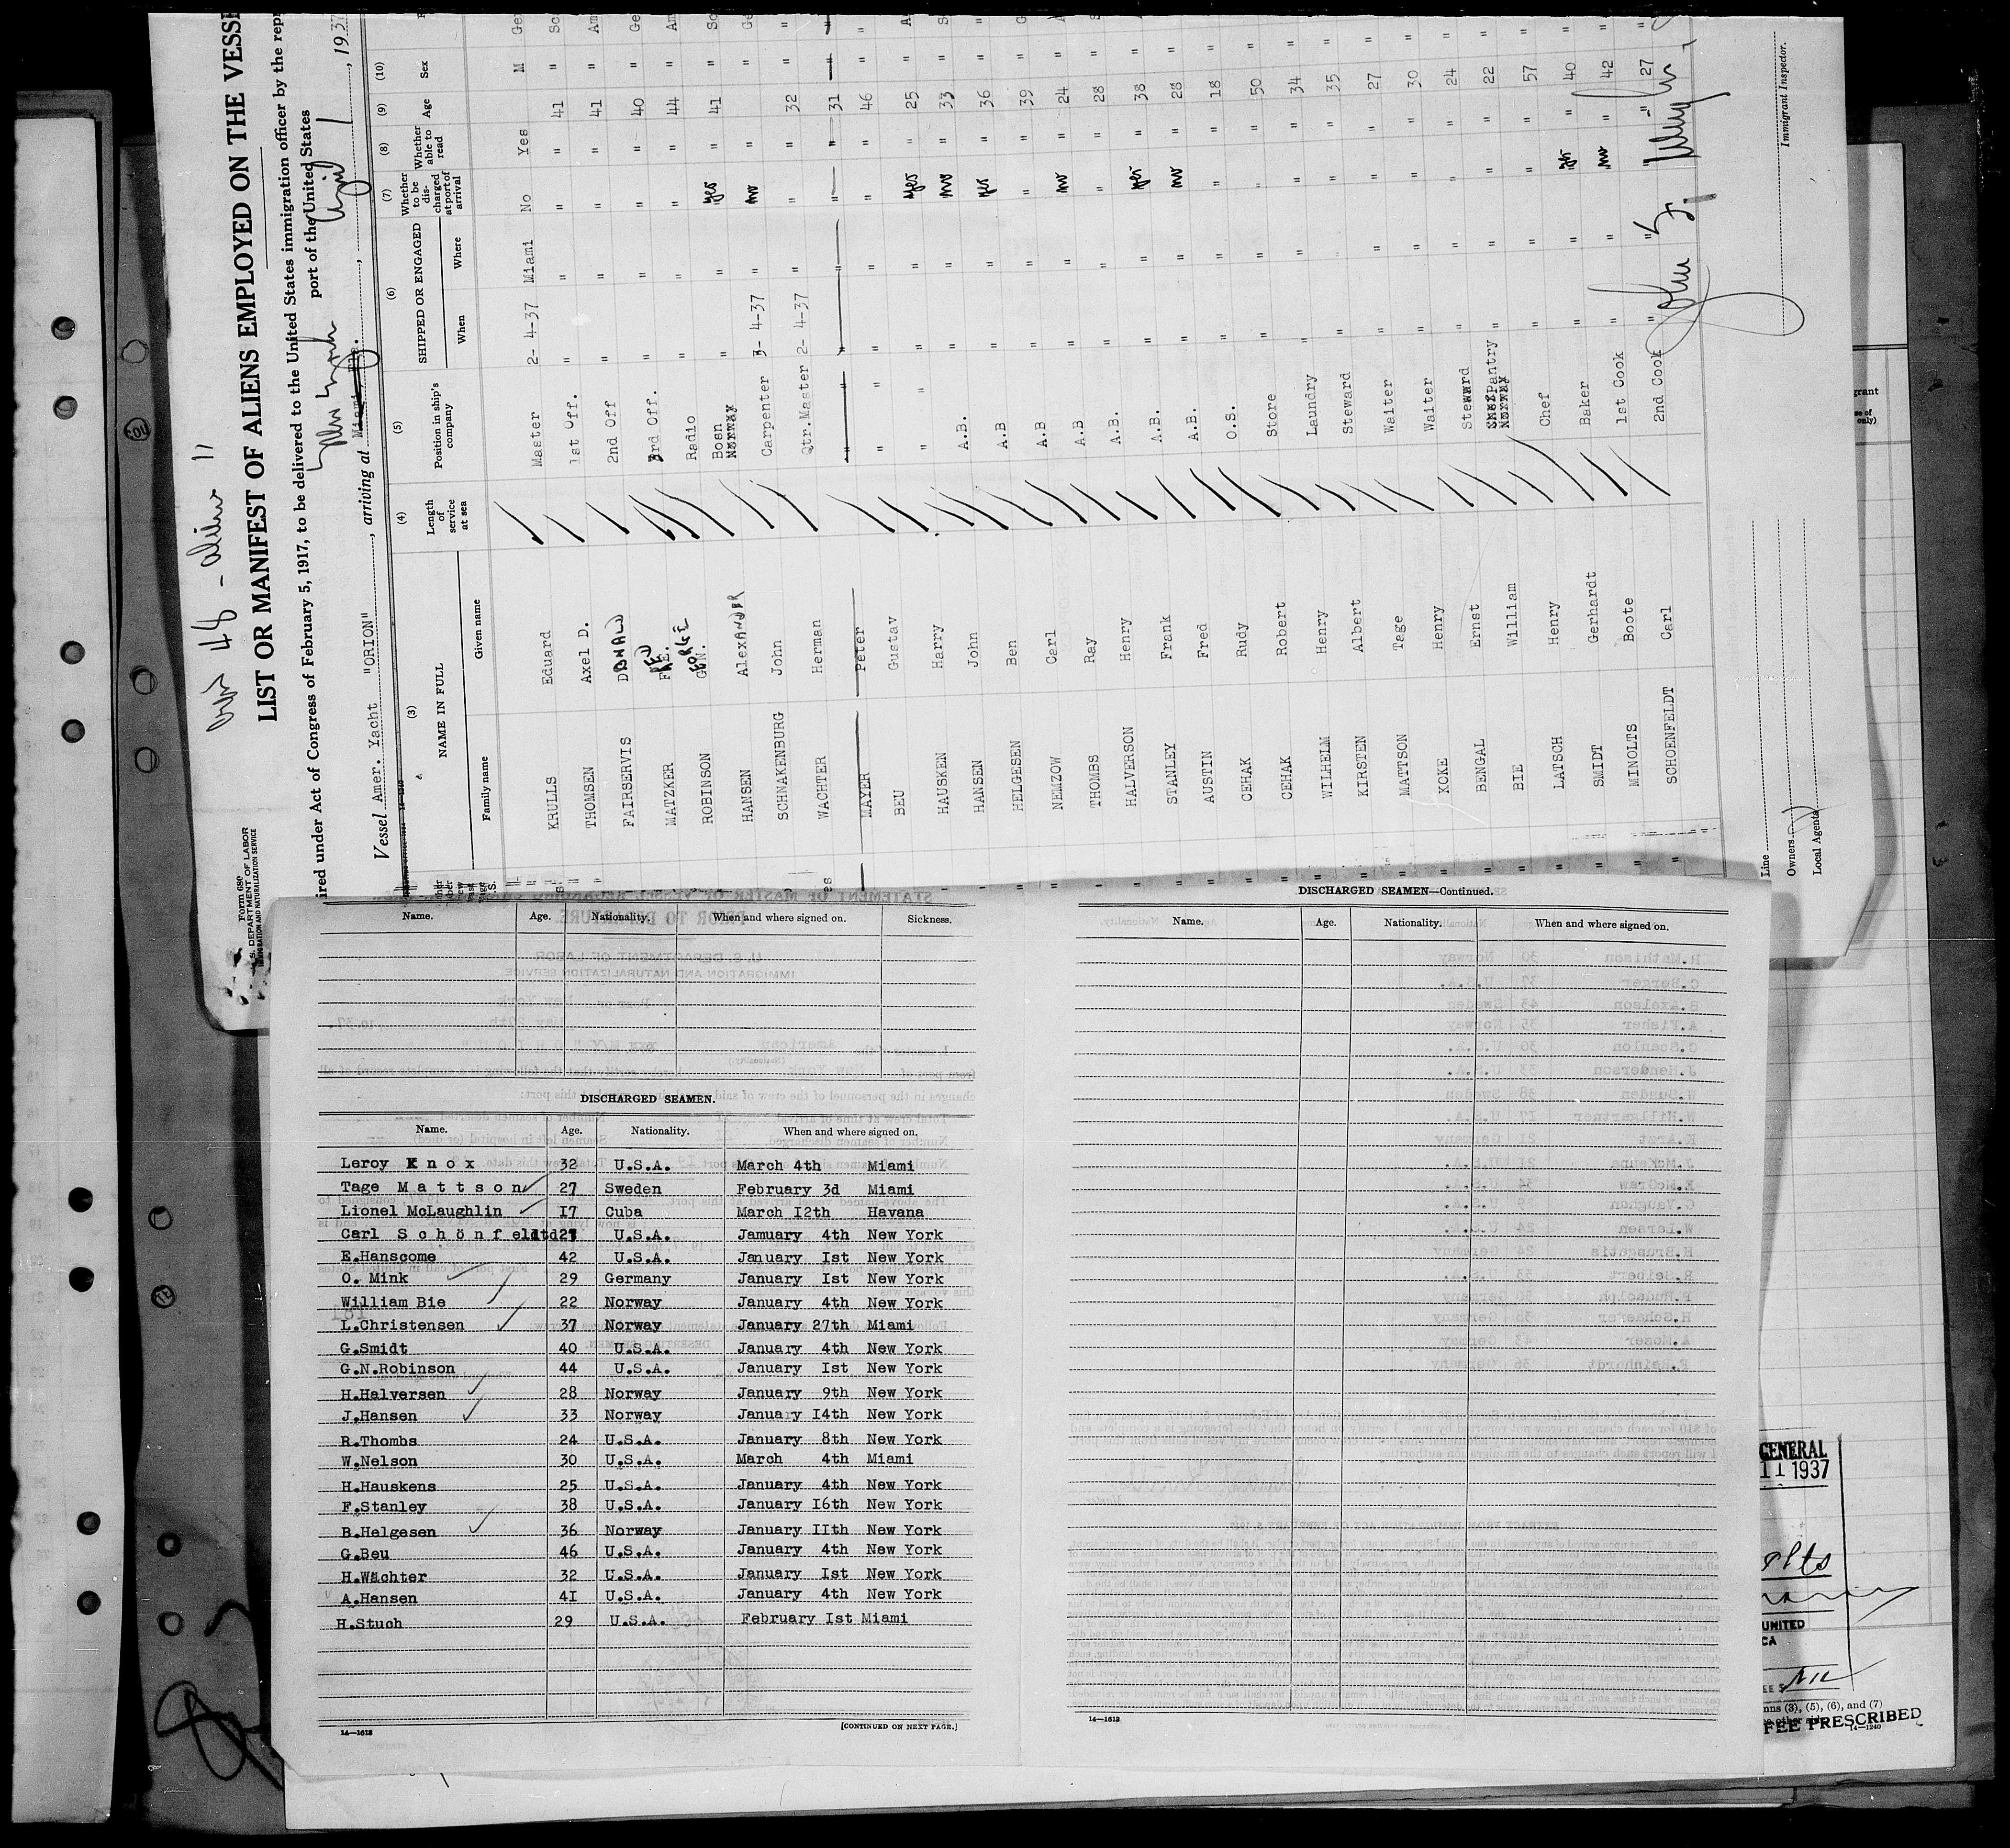 Form 680
U. S. DEPARTMENT OF LABOR
IMMIGRATION AND NATURALIZATION SERVICE
LIST OR MANIFEST OF ALIENS EMPLOYED ON THE VESSE
ired under Act of Congress of February 5, 1917, to be delivered to the United States immigration officer by the repr
port of the United States
Vessel Amer. Yacht "ORION", arriving at , 1937
(3) (4) (5) (6) (7) (8) (9) (10)
NAME IN FULL Length of service at sea Position in ship's company SHIPPED OR ENGAGED Whether to be discharged at port of arrival Whether able to read Age Sex
Family name Given name When Where
KRULLS Eduard Master 2- 4-37 Miami No Yes 41 M Ge
THOMSEN Axel D. 1st Off. " " " " 41 " Sc
FAIRSERVIS DONALD 2nd Off " " " " 40 " Am
MATZKER 3rd Off. " " " " 44 " Ge
ROBINSON GEORGE N. Radio " " " " 41 " Am
HANSEN AlexANDER Bosn " " yes " " Sc
SCHNAKENBURG John Carpenter 3- 4-37 " no " " Ge
WACHTER Herman Qtr.Master 2- 4-37 " " " 32 " "
MAYER Peter " " " " " 31 " "
BEU Gustav " " " " " 46 " "
HAUSKEN Harry " " " yes " 25 " A
HANSEN John A.B. " " no " 33 " S
HELGESSEN Ben A.B " " yes " 36 " "
NEMZOW Carl A.B " " " " 39 " G
THOMBS Ray A.B " " no " 24 "
HALVERSON Henry A.B. " " " " 28 "
STANLEY Frank A.B. " " yes " 38 "
AUSTIN Fred A.B. " " no " 28 " "
CEHAK Rudy O.S. " " " " 18 " "
CEHAK Robert Store " " " " 50 " "
WILHELM Henry Laundry " " " " 34 " "
KIRSTEN Albert Steward " " " " 35 " "
MATTSON Tage Waiter " " " " 27 " "
KOKE Henry Waiter " " " " 30 " "
BENGAL Ernst Steward " " " " 24 " "
BIE William Pantry " " " " 22 " "
LATSCH Henry Chef " " " " 57 " "
SMIDT Gerhardt Baker " " yes " 40 " "
MINOLTS Boote 1st Cook " " no " 42 " "
SCHOENFELDT Carl 2nd Cook " " " " 27 " "
Immigrant Inspector.
Line
Owners
Local Agents
Name. Age. Nationality. When and where signed on. Sickness.
DISCHARGED SEAMEN.
Name. Age. Nationality. When and where signed on.
Leroy Knox 32 U.S.A. March 4th Miami
Tage Mattson 27 Sweden February 3d Miami
Lionel McLaughlin 17 Cuba March 12th Havana
Carl Schönfeldtd 27 U.S.A. Jamuary 4th New York
E.Hanscome 42 U.S.A. January Ist New York
O. Mink 29 Germany January Ist New York
William Bie 22 Norway January 4th New York
L.Christensen 37 Norway January 27th Miami
G.Smidt 40 U.S.A. January 4th New York
G.N.Robinson 44 U.S.A. January Ist New York
H.Halversen 28 Norway January 9th New York
J.Hansen 33 Norway January I4th New York
R.Thombs 24 U.S.A. January 8th New York
W.Nelson 30 U.S.A. March 4th Miami
H.Hauskens 25 U.S.A. January 4th New York
F.Stanley 38 U.S.A. January I6th New York
B.Helgesen 36 Norway January IIth New York
G.Beu 46 U.S.A. January 4th New York
H.Wächter 32 U.S.A. January Ist New York
A.Hansen 41 U.S.A. January 4th New York
H.Stuch 29 U.S.A. February Ist Miami
14—1612
[CONTINUED ON NEXT PAGE.]
DISCHARGED SEAMEN—Continued.
Name. Age. Nationality. When and where signed on.
14—1612
GENERAL
11 1937
UNITED
CA
nns (3), (5), (6), and (7)
other side
FEE PRESCRIBED
14—1240